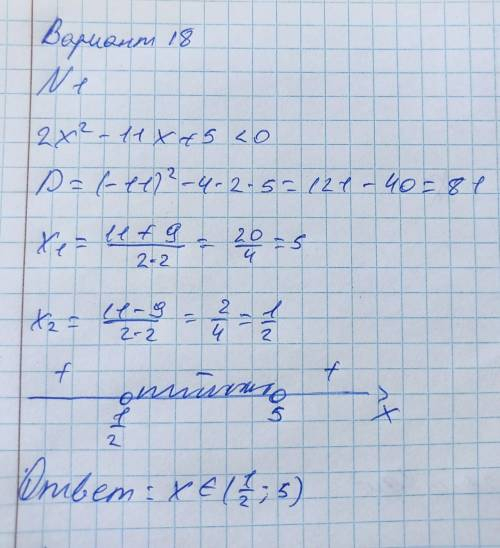 Вариант 18
N 1
2x² - 11x + 5 < 0
D = (-11)² - 4·2·5 = 121 - 40 = 81
x₁ = (11 + 9)/(2·2) = 20/4 = 5
x₂ = (11 - 9)/(2·2) = 2/4 = 1/2
+ - +
1/2 5 x
Ответ: x ∈ (1/2; 5)